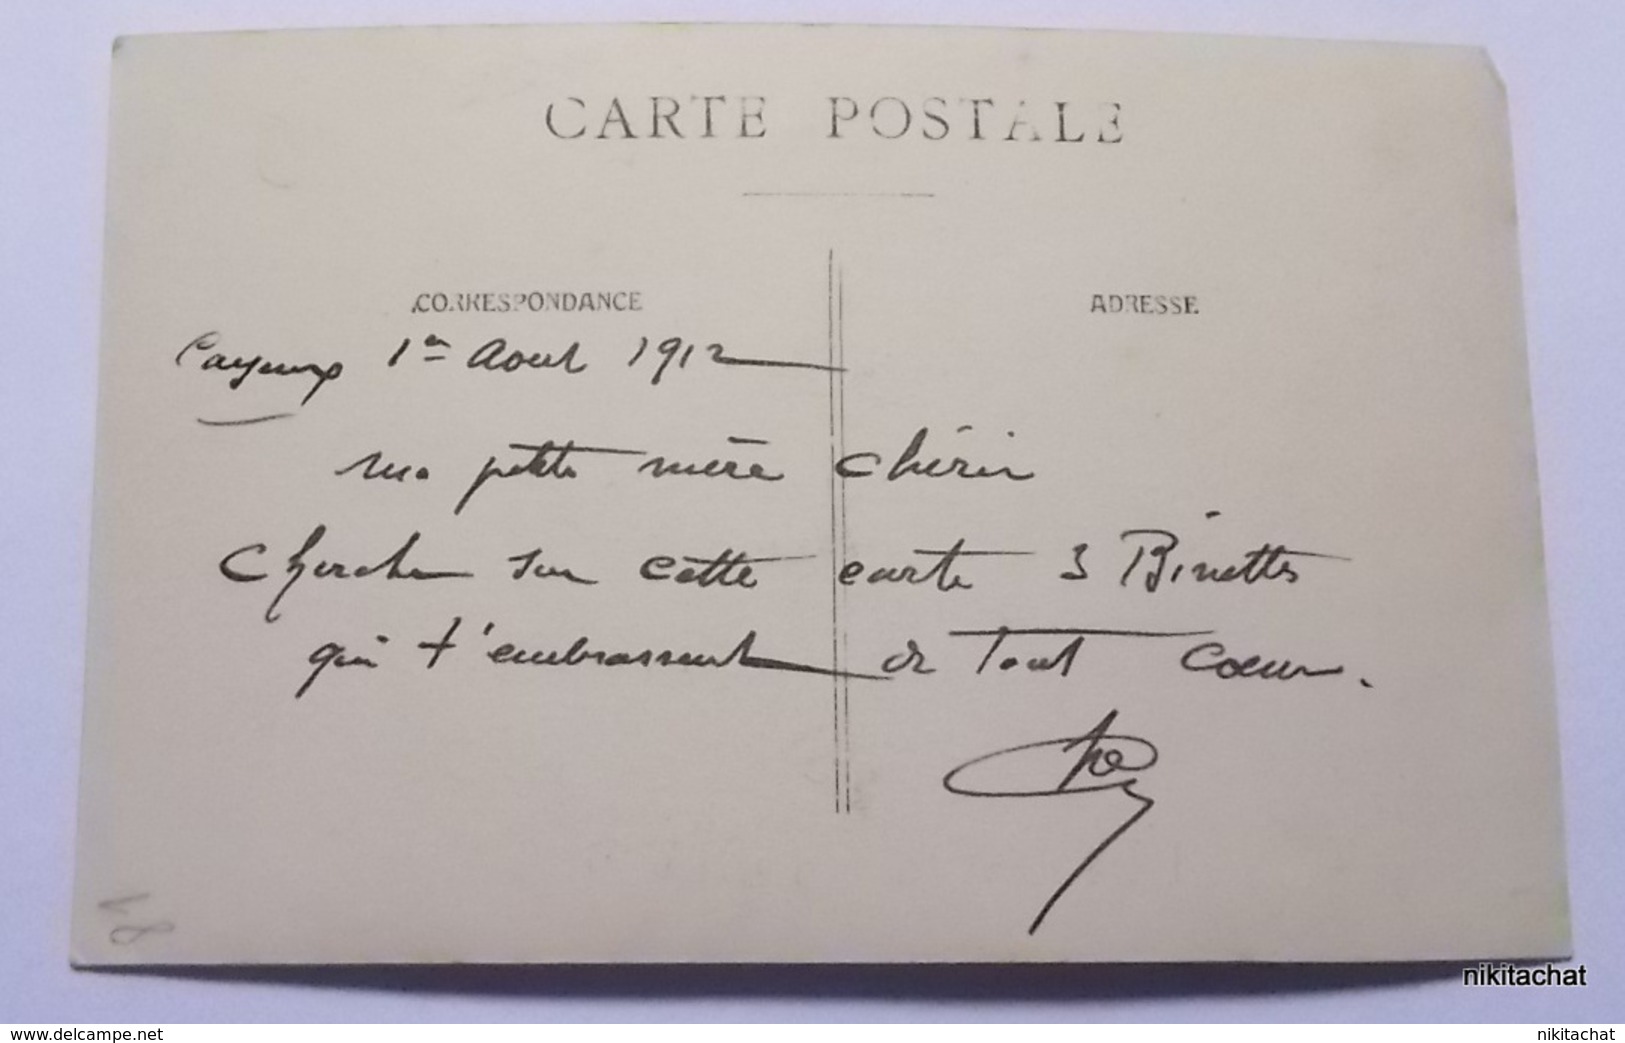 CARTE POSTALE
CORRESPONDANCE
ADRESSE
Cayeux 1er Aout 1912
ma petite mère chérie
Cherche sur cette carte 3 Binettes
qui t'embrassent de tout coeur.
18
nikitachat
www.delcampe.net
nikitachat